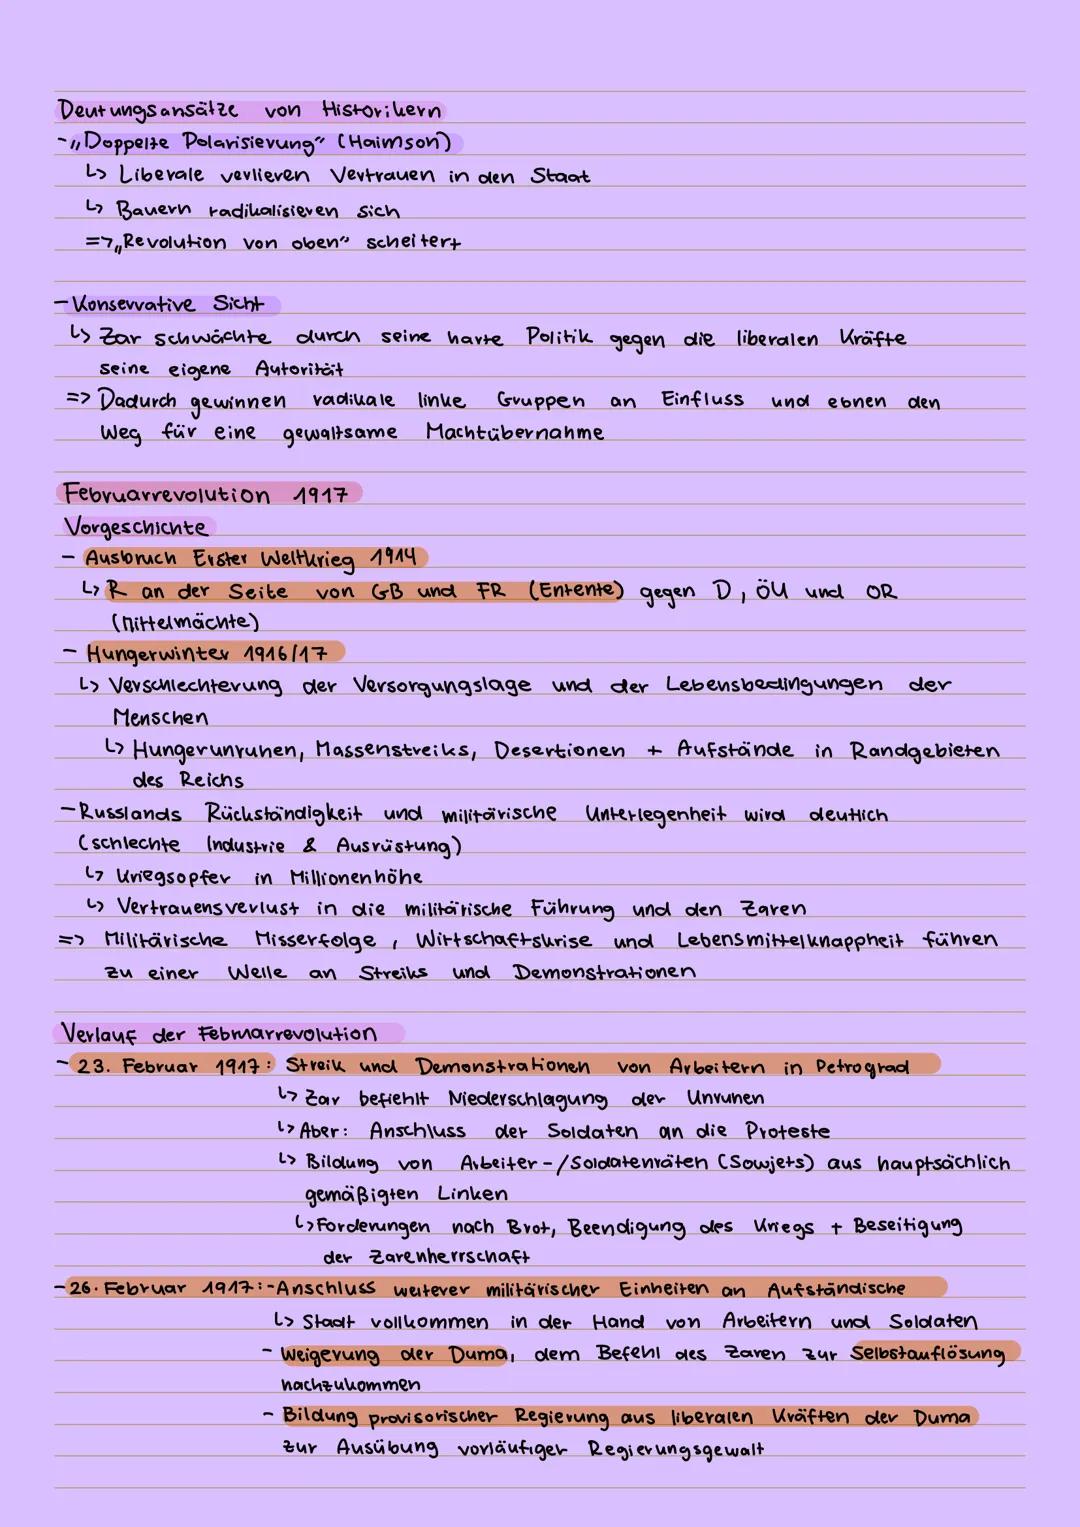 Deutungsansätze von Historikern
- „Doppelte Polarisierung“ (Haimson)
↳ Liberale verlieren Vertrauen in den Staat
↳ Bauern radikalisieren sich
=> „Revolution von oben“ scheitert
- Konservative Sicht
↳ Zar schwächte durch seine harte Politik gegen die liberalen Kräfte
seine eigene Autorität
=> Dadurch gewinnen radikale linke Gruppen an Einfluss und ebnen den
Weg für eine gewaltsame Machtübernahme
Februarrevolution 1917
Vorgeschichte
- Ausbruch Erster Weltkrieg 1914
↳ R an der Seite von GB und FR (Entente) gegen D, ÖU und OR
(Mittelmächte)
- Hungerwinter 1916/17
↳ Verschlechterung der Versorgungslage und der Lebensbedingungen der
Menschen
↳ Hungerunruhen, Massenstreiks, Desertionen + Aufstände in Randgebieten
des Reichs
- Russlands Rückständigkeit und militärische Unterlegenheit wird deutlich
(schlechte Industrie & Ausrüstung)
↳ Kriegsopfer in Millionenhöhe
↳ Vertrauensverlust in die militärische Führung und den Zaren
=> Militärische Misserfolge, Wirtschaftskrise und Lebensmittelknappheit führen
zu einer Welle an Streiks und Demonstrationen
Verlauf der Februarrevolution
- 23. Februar 1917: Streik und Demonstrationen von Arbeitern in Petrograd
↳ Zar befiehlt Niederschlagung der Unruhen
↳ Aber: Anschluss der Soldaten an die Proteste
↳ Bildung von Arbeiter-/Soldatenräten (Sowjets) aus hauptsächlich
gemäßigten Linken
↳ Forderungen nach Brot, Beendigung des Kriegs + Beseitigung
der Zarenherrschaft
- 26. Februar 1917: - Anschluss weiterer militärischer Einheiten an Aufständische
↳ Stadt vollkommen in der Hand von Arbeitern und Soldaten
- Weigerung der Duma, dem Befehl des Zaren zur Selbstauflösung
nachzukommen
- Bildung provisorischer Regierung aus liberalen Kräften der Duma
zur Ausübung vorläufiger Regierungsgewalt